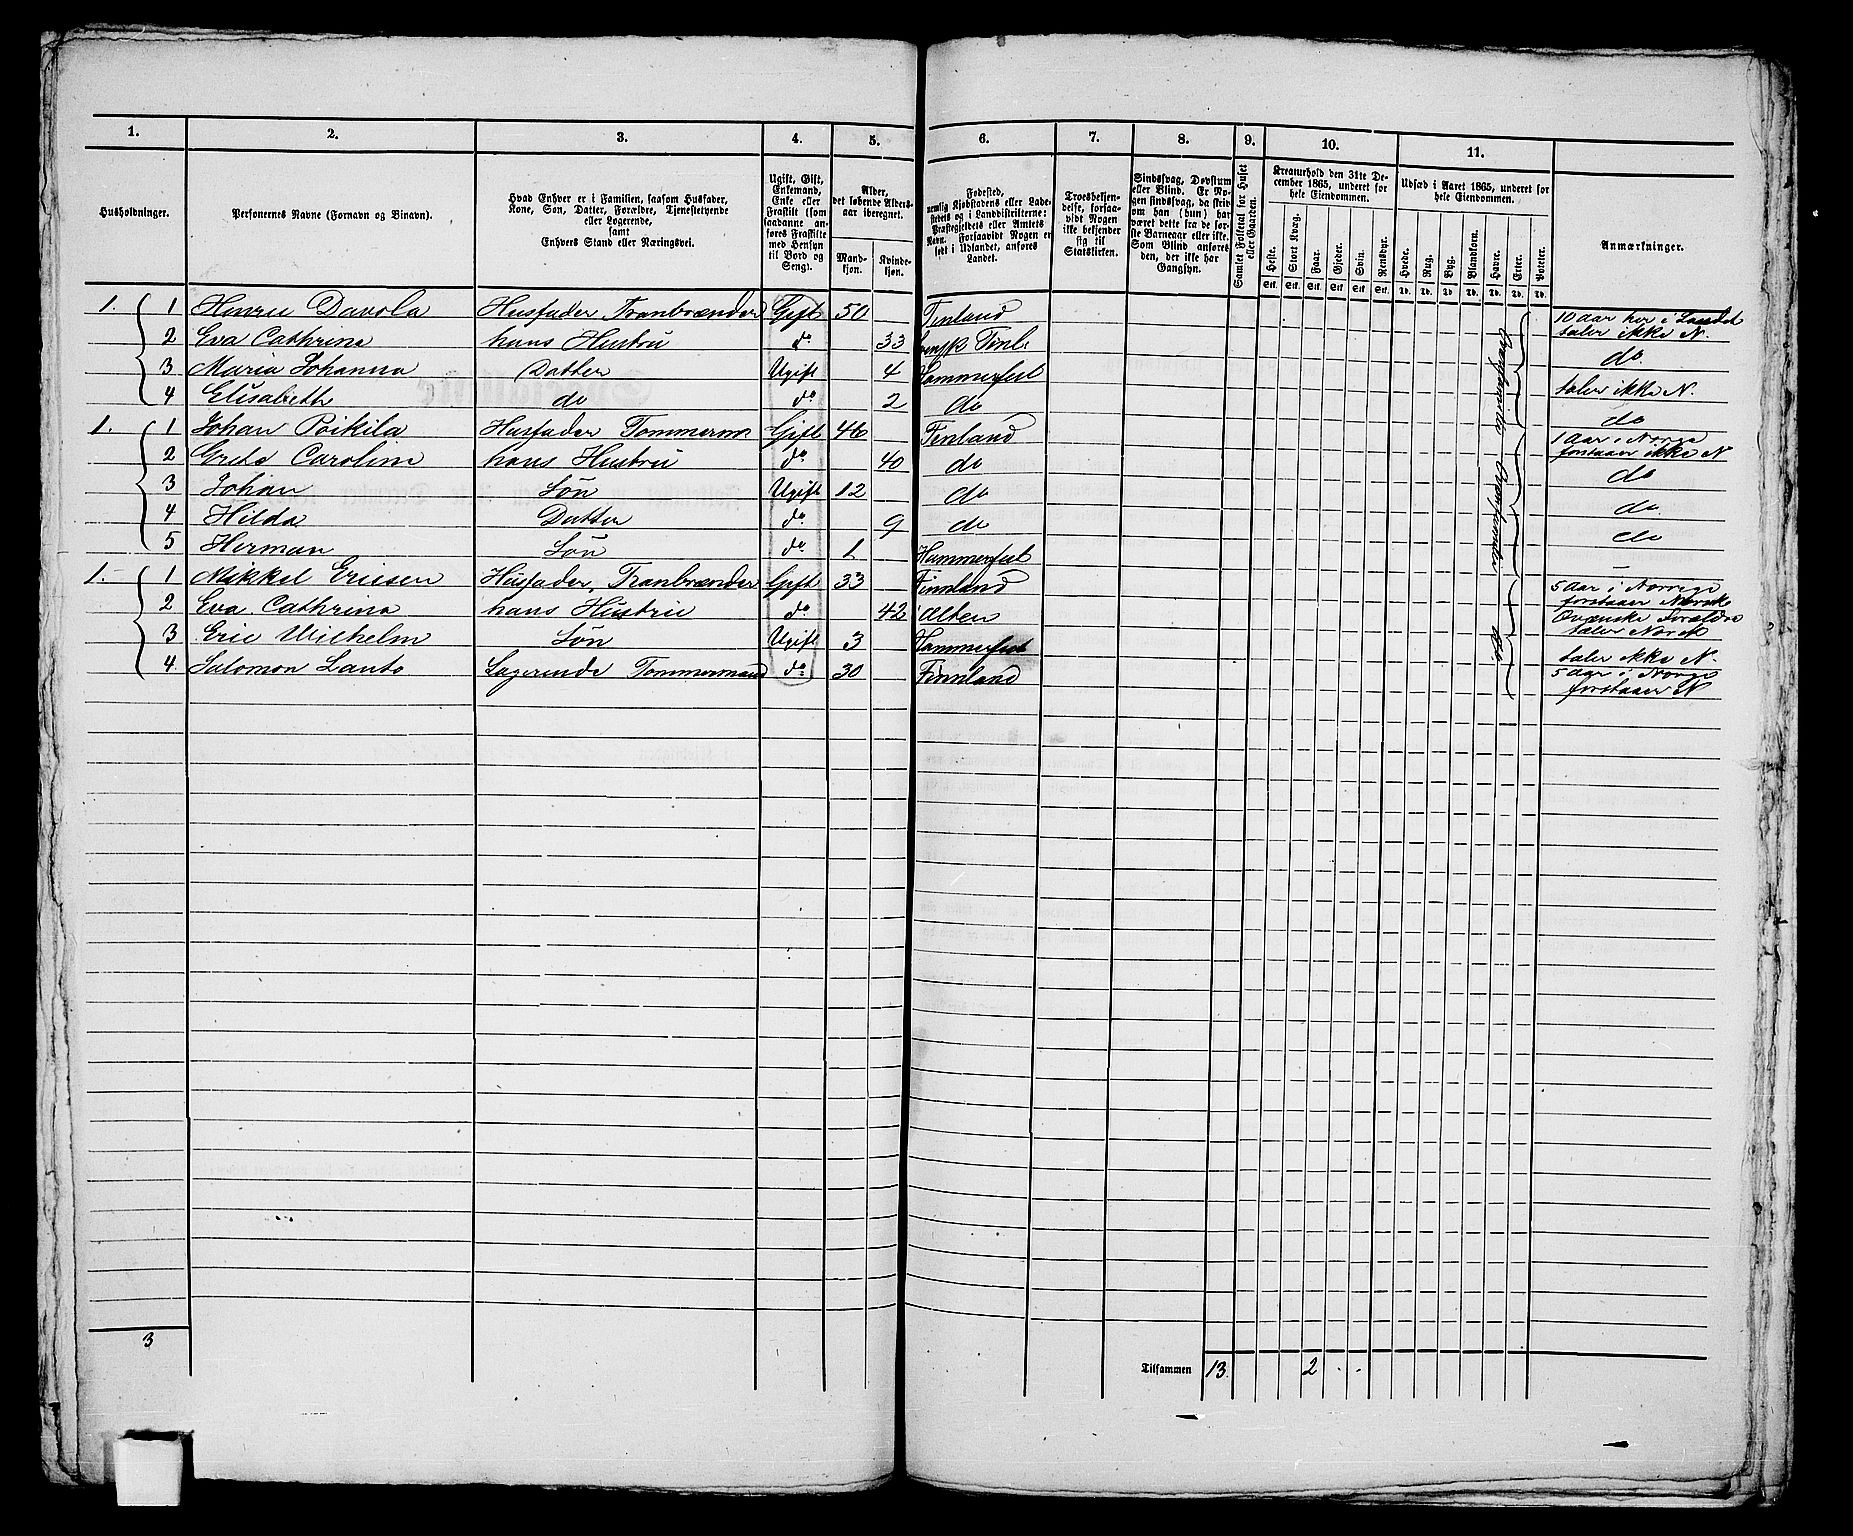 1. 2. 3. 4. 5. 6. 7. 8. 9. 10. 11.
Husholdninger.
Personernes Navne (Fornavn og Binavn).
Hvad Enhver er i Familien, saasom Husfader,
Kone, Søn, Datter, Forældre, Tjenestetyende
eller Logerende,
samt
Enhvers Stand eller Næringsvei.
Ugift, Gift,
Enkemand,
Enke eller
Fraskilt (som
saadanne an-
føres Fraskilte
med Hensyn
til Bord og
Seng).
Alder,
det løbende Alders-
aar iberegnet.
Mand-
kjøn.
Kvinde-
kjøn.
Fødested,
nemlig Kjøbstadens eller Lade-
stedets og i Landdistrikterne:
Præstegjeldets eller Amtets
Navn. Forsaavidt Nogen er
født i Udlandet, anføres
Landet.
Troesbekjen-
delse, forsaa-
vidt Nogen
ikke bekjender
sig til
Statskirken.
Sindssvag, Døvstum
eller Blind. Er No-
gen sindssvag, da skriv
om han (hun) har
været dette fra de før-
ste Barneaar eller ikke.
Som Blind anføres
den, der ikke har
Gangsyn.
Samlet Folketal for Huset
eller Gaarden.
Kreaturhold den 31te De-
cember 1865, underet for
hele Eiendommen.
Heste. Stort Kvæg. Faar. Gjeder. Svin. Rensdyr.
Stk. Stk. Stk. Stk. Stk. Stk.
Udsæd i Aaret 1865, underet for
hele Eiendommen.
Hvede. Rug. Byg. Blandkorn. Havre. Erter. Poteter.
Td. Td. Td. Td. Td. Td. Td.
Anmærkninger.
1. 1 Henric Davola Husfader, Tranbrænder Gift 50 Finland 10 aar her i Landet
taler ikke N.
2 Eva Cathrina hans Hustru do 33 Finl. do.
3 Maria Johanna Datter Ugift 4 Hammerfest taler ikke N.
4 Elisabeth do do 2 do do
1. 1 Johan Poikila Husfader Tommerm. Gift 46 Finland 1 aar i Norge
forstaaer ikke N
2 Greta Carolina hans Hustru do 40 do do
3 Johan Søn Ugift 12 do do.
4 Hilda Datter do 9 do do
5 Herman Søn do 1 Hammerfest —
1. 1 Mikkel Ericsen Husfader, Tranbrænder Gift 33 Finnland 5 aar i Norge
forstaaer Norsk
2 Eva Cathrina hans Hustru do 42 Alten Qvænske Forældre
taler Norsk
3 Eric Wilhelm Søn Ugift 3 Hammerfest taler ikke N.
4 Salomon Lauto Logerende Tommermand do 30 Finnland 5 aar i Norge
forstaaer N
3
Tilsammen 13 2 - -